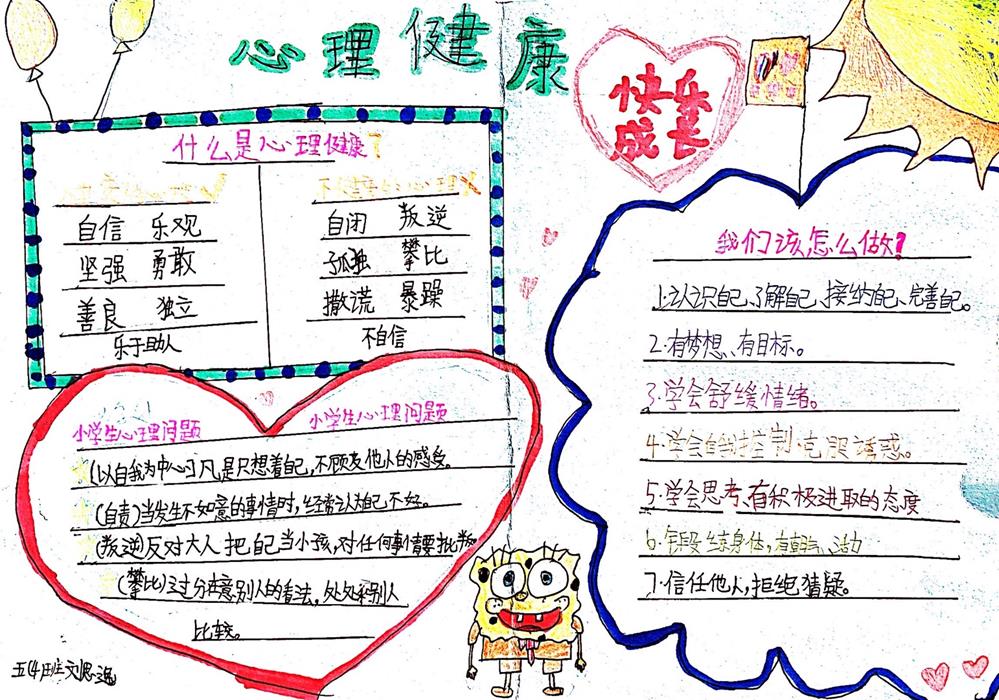 心理健康
快乐
成长
什么是心理健康?
自信 乐观
坚强 勇敢
善良 独立
乐于助人
不健康的心理
自闭 叛逆
孤独 攀比
撒谎 暴躁
不自信
小学生心理问题
小学生心理问题
(以自我为中心)凡是只想着自己,不顾及他人的感受。
(自责)当发生不如意的事情时,经常认为自己不好。
(叛逆)反对大人把自己当小孩,对任何事情要批判
(攀比)过分在意别人的看法,处处和别人
比较。
我们该怎么做?
1.认识自己、了解自己、接纳自己、完善自己。
2.有梦想、有目标。
3.学会舒缓情绪。
4.学会自我控制、克服诱惑。
5.学会思考、有积极进取的态度
6.锻练身体,有朝气、活力
7.信任他人,拒绝猜疑。
五(4)班